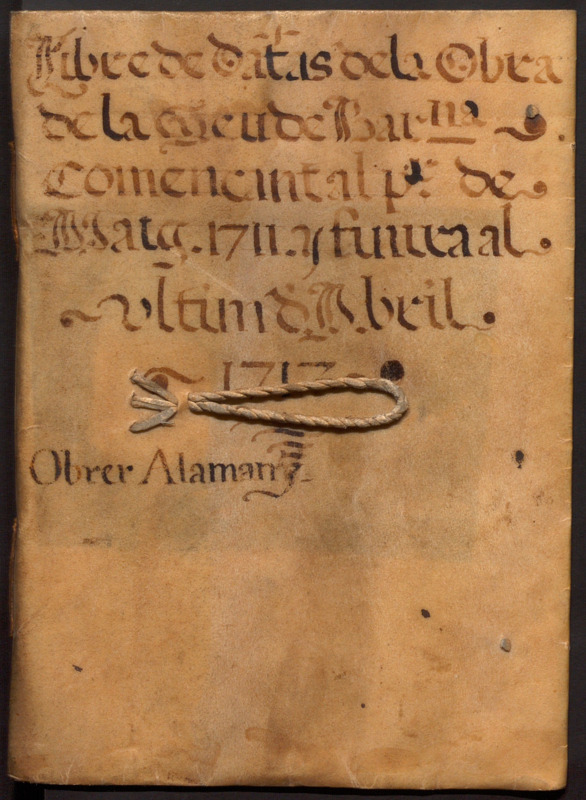 Libre de Datas de la Obra
de la Seu de Barna.
Comencant al pr. de
Matg. 1711. y finira al
ultim d' Abril
1713
Obrer Alamany